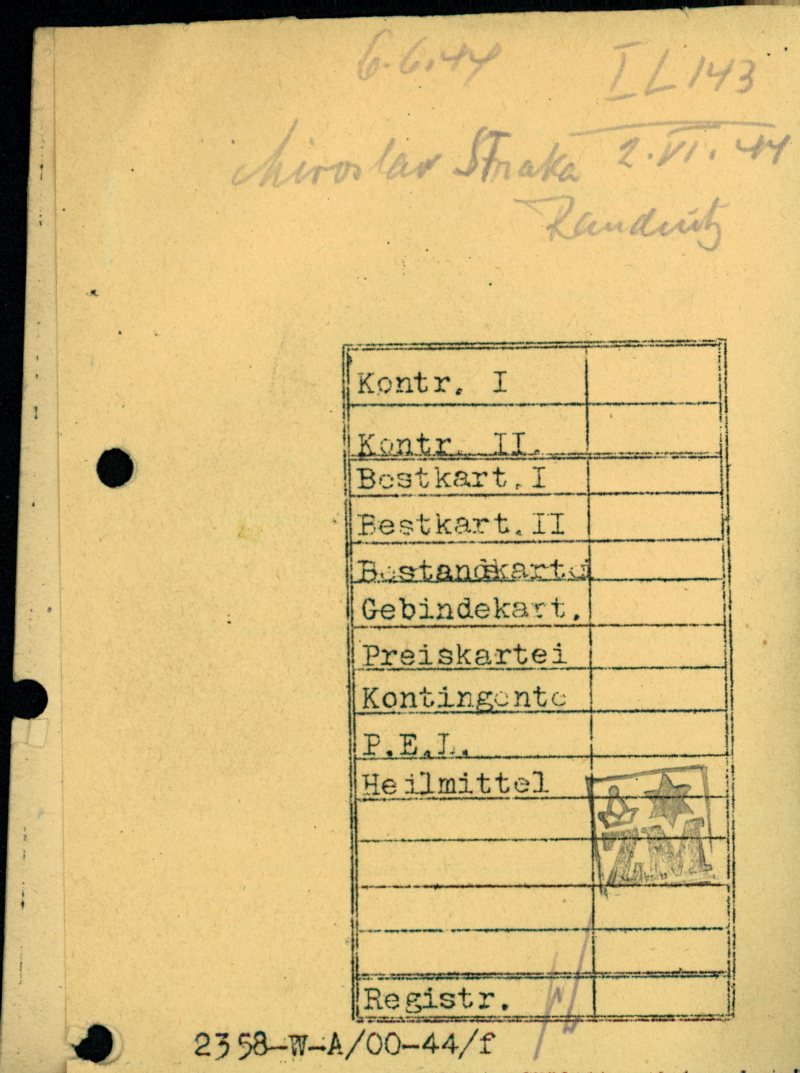 6.6.44
I L 143
Miroslav Straka 2.VI.44
Raudnitz
Kontr. I
Kontr. II.
Bestkart.I
Bestkart.II
Bestandskartei
Gebindekart.
Preiskartei
Kontingente
P.E.L.
Heilmittel
ZM
Registr.
2358-W-A/00-44/f